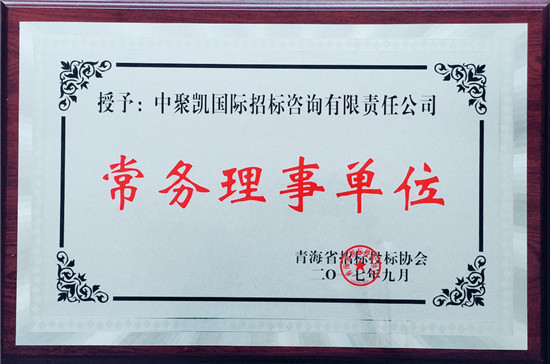 授予：中聚凯国际招标咨询有限责任公司
常务理事单位
青海省招标投标协会
二〇一七年九月